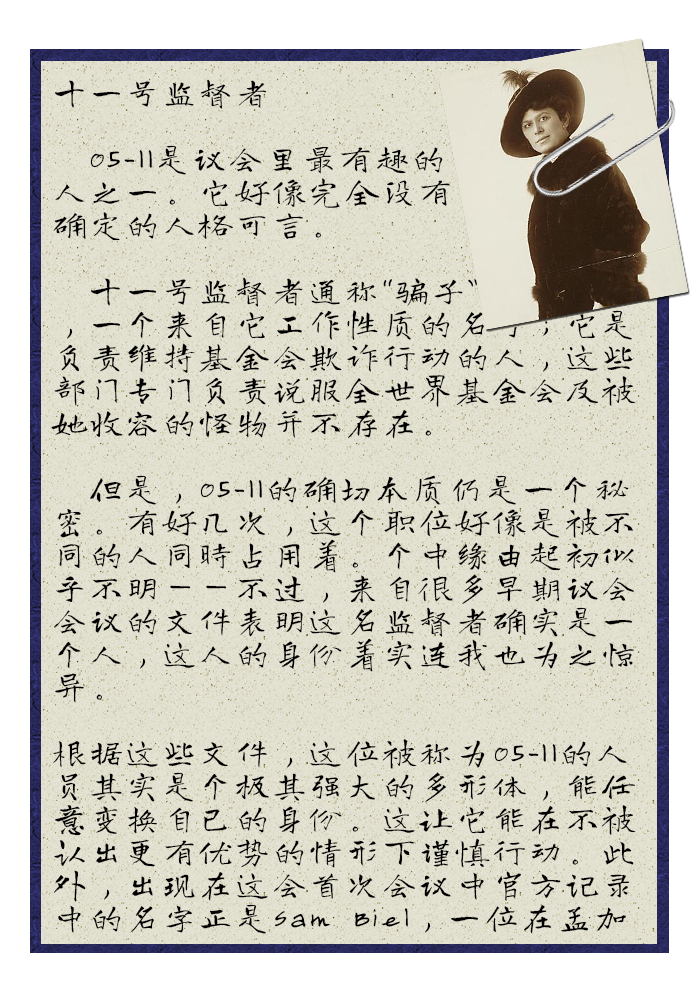 十一号监督者
05-11是议会里最有趣的
人之一。它好像完全没有
确定的人格可言。
十一号监督者通称“骗子”
，一个来自它工作性质的名 ，它是
负责维持基金会欺诈行动的人，这些
部门专门负责说服全世界基金会及被
她收容的怪物并不存在。
但是，05-11的确切本质仍是一个秘
密。有好几次，这个职位好像是被不
同的人同時占用着。个中缘由起初似
乎不明——不过，来自很多早期议会
会议的文件表明这名监督者确实是一
个人，这人的身份着实连我也为之惊
异。
根据这些文件，这位被称为05-11的人
员其实是个极其强大的多形体，能任
意变换自己的身份。这让它能在不被
认出更有优势的情形下谨慎行动。此
外，出现在这会首次会议中官方记录
中的名字正是Sam Biel，一位在孟加